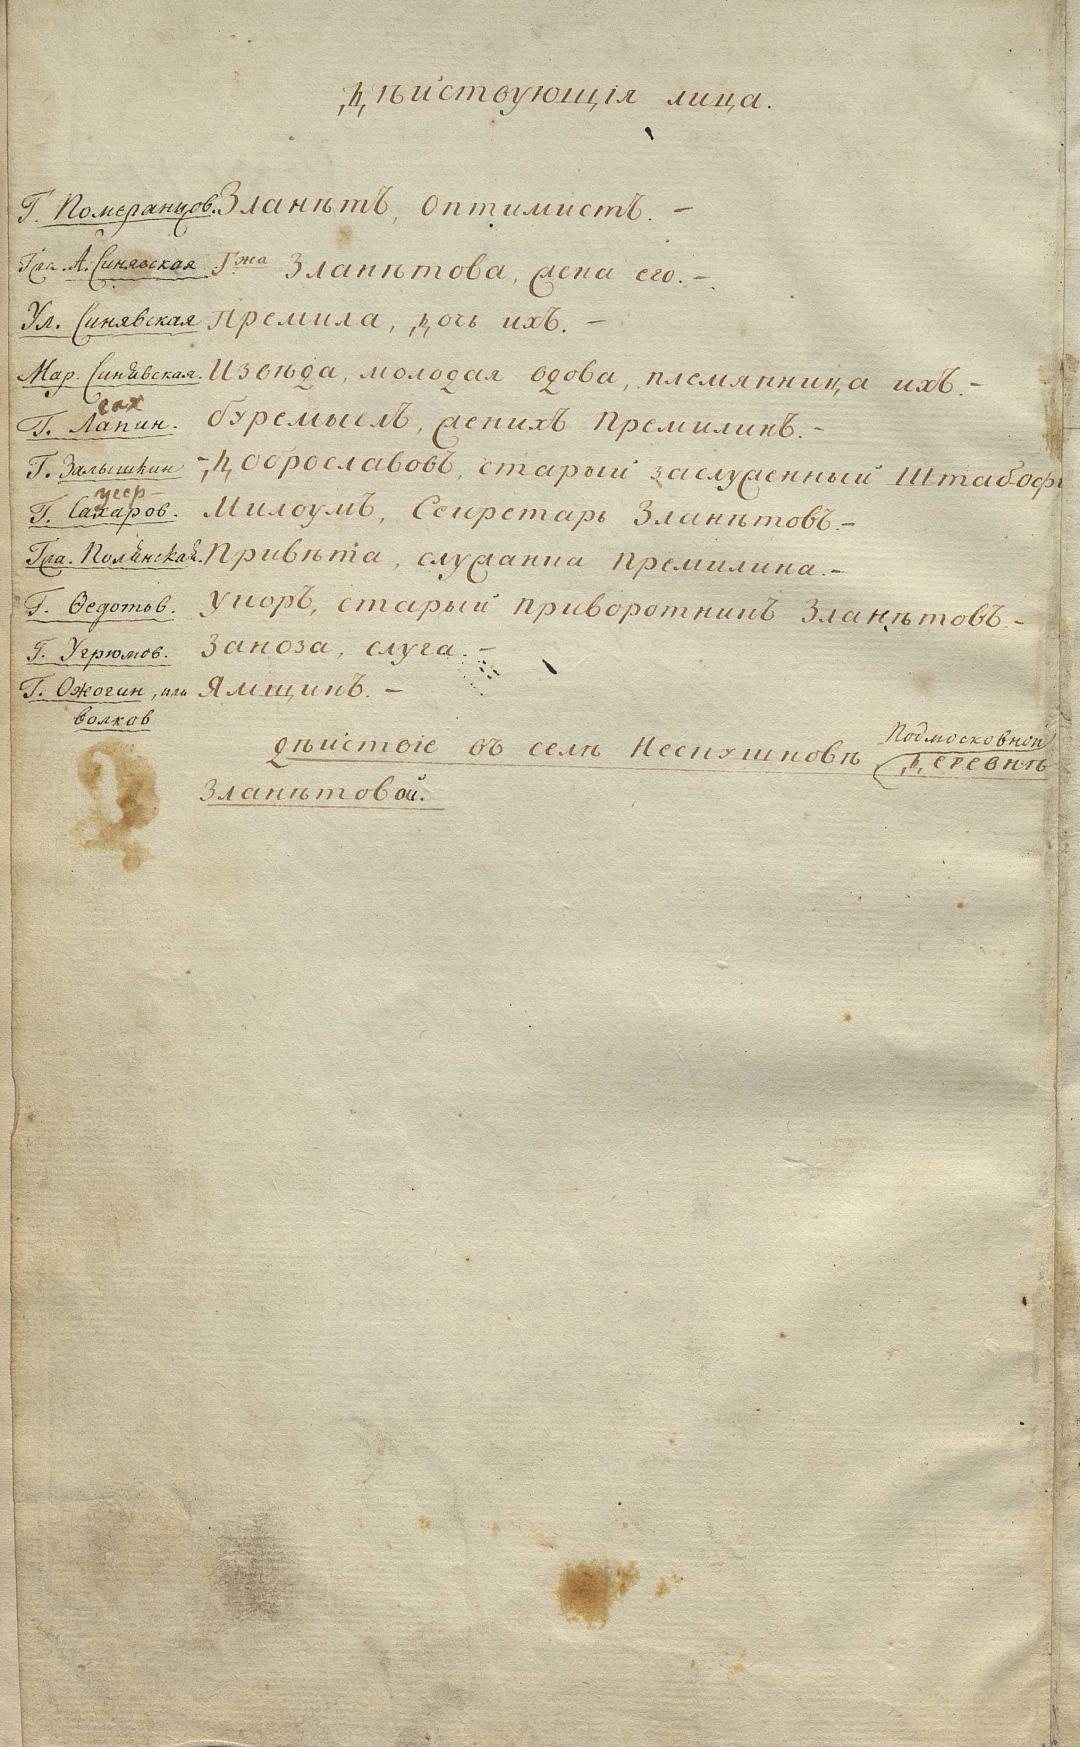 Дѣиствующія лица.
Г. Померанцов. Зланѣтъ, оптимистъ. –
Гжа. А. Синявская Г.жа Зланѣтова, жена его. –
Ул. Синявская Премила, дочь ихъ. –
Мар. Синявская. Извѣда, молодая вдова, племянница ихъ. –
сах
Г. Лапин. буремыслъ, женихъ Премилинъ. –
Г. Залышкин – Доброславовъ, старый заслуженный Штаб-оф
Г. Сахаров. Милоумъ, Секретарь Зланѣтовъ. –
Гжа. Полянская. Привѣта, служанка Премилина. –
Г. Ѳедотов. Укоръ, старый приворотникъ Зланѣтовъ. –
Г. Угрюмов. Заноза, слуга. –
Г. Ожогин, или Ямщикъ. –
волков
Подмосковной
дѣиствіе въ селѣ Нескушковѣ деревнѣ
Зланѣтовой.